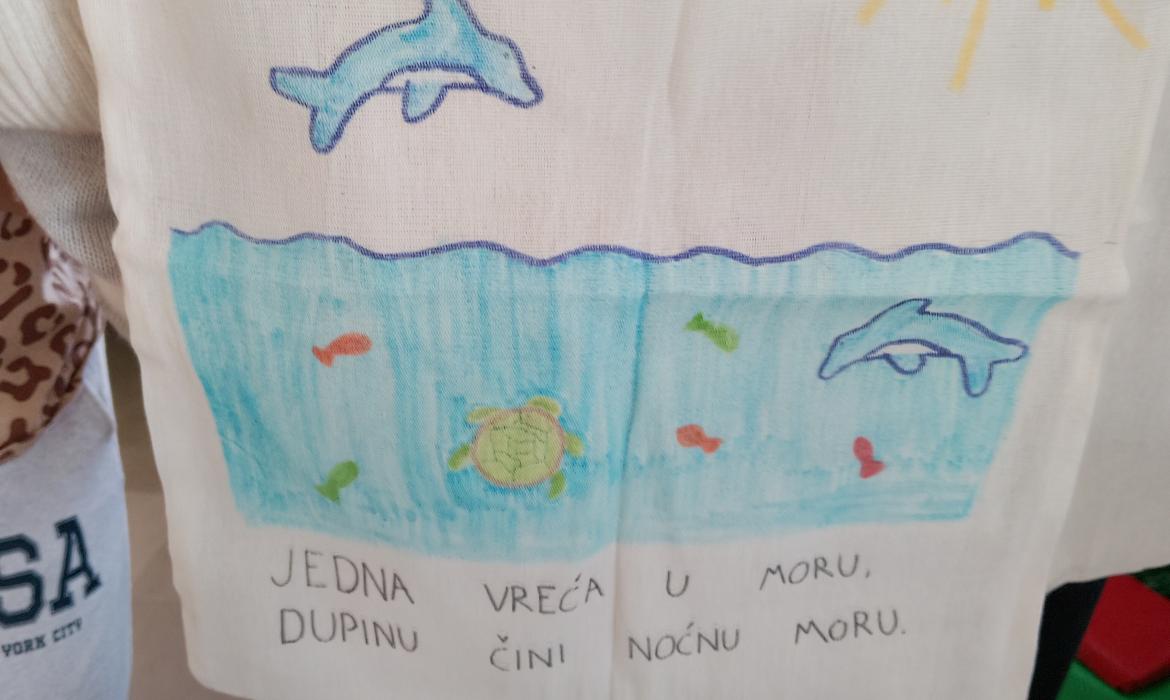 JEDNA VREĆA U MORU,
DUPINU ČINI NOĆNU MORU.
SA
YORK CITY